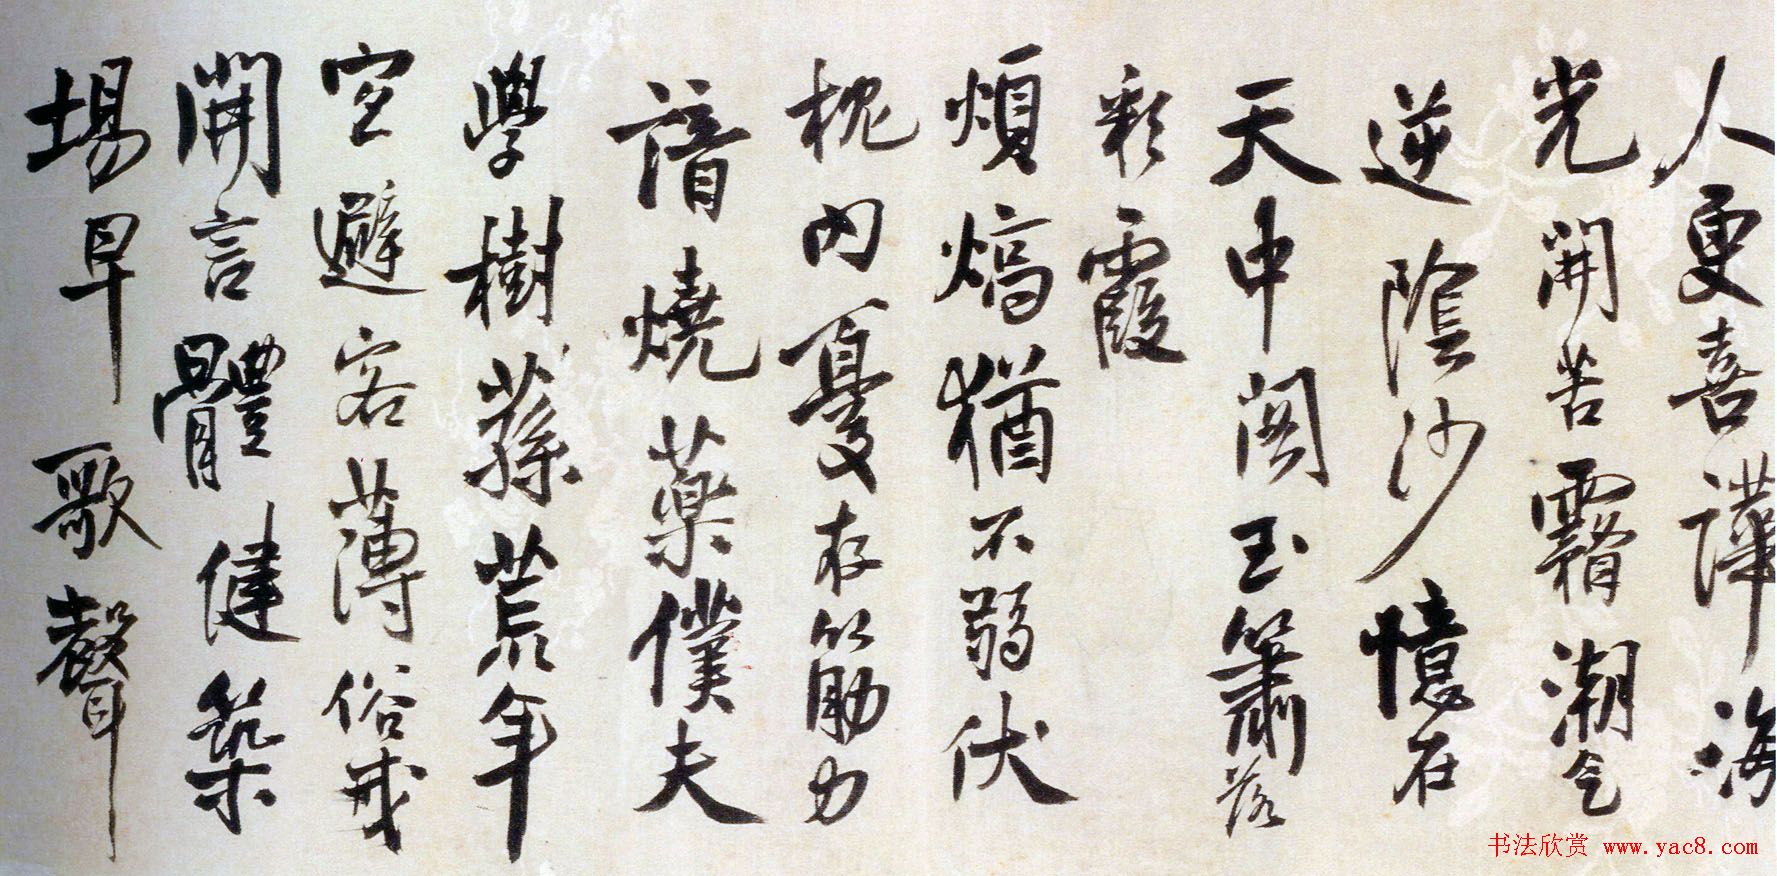 人更喜譁海
光開苦霧潮气
逆陰沙憶在
天中閣玉簫落
彩霞
煩熇猶不弱伏
枕內憂存筋力
諳燒藥僕夫
學樹蓀荒年
室避客薄俗戒
開言體健築
場早歌聲
书法欣赏 www.yac8.com